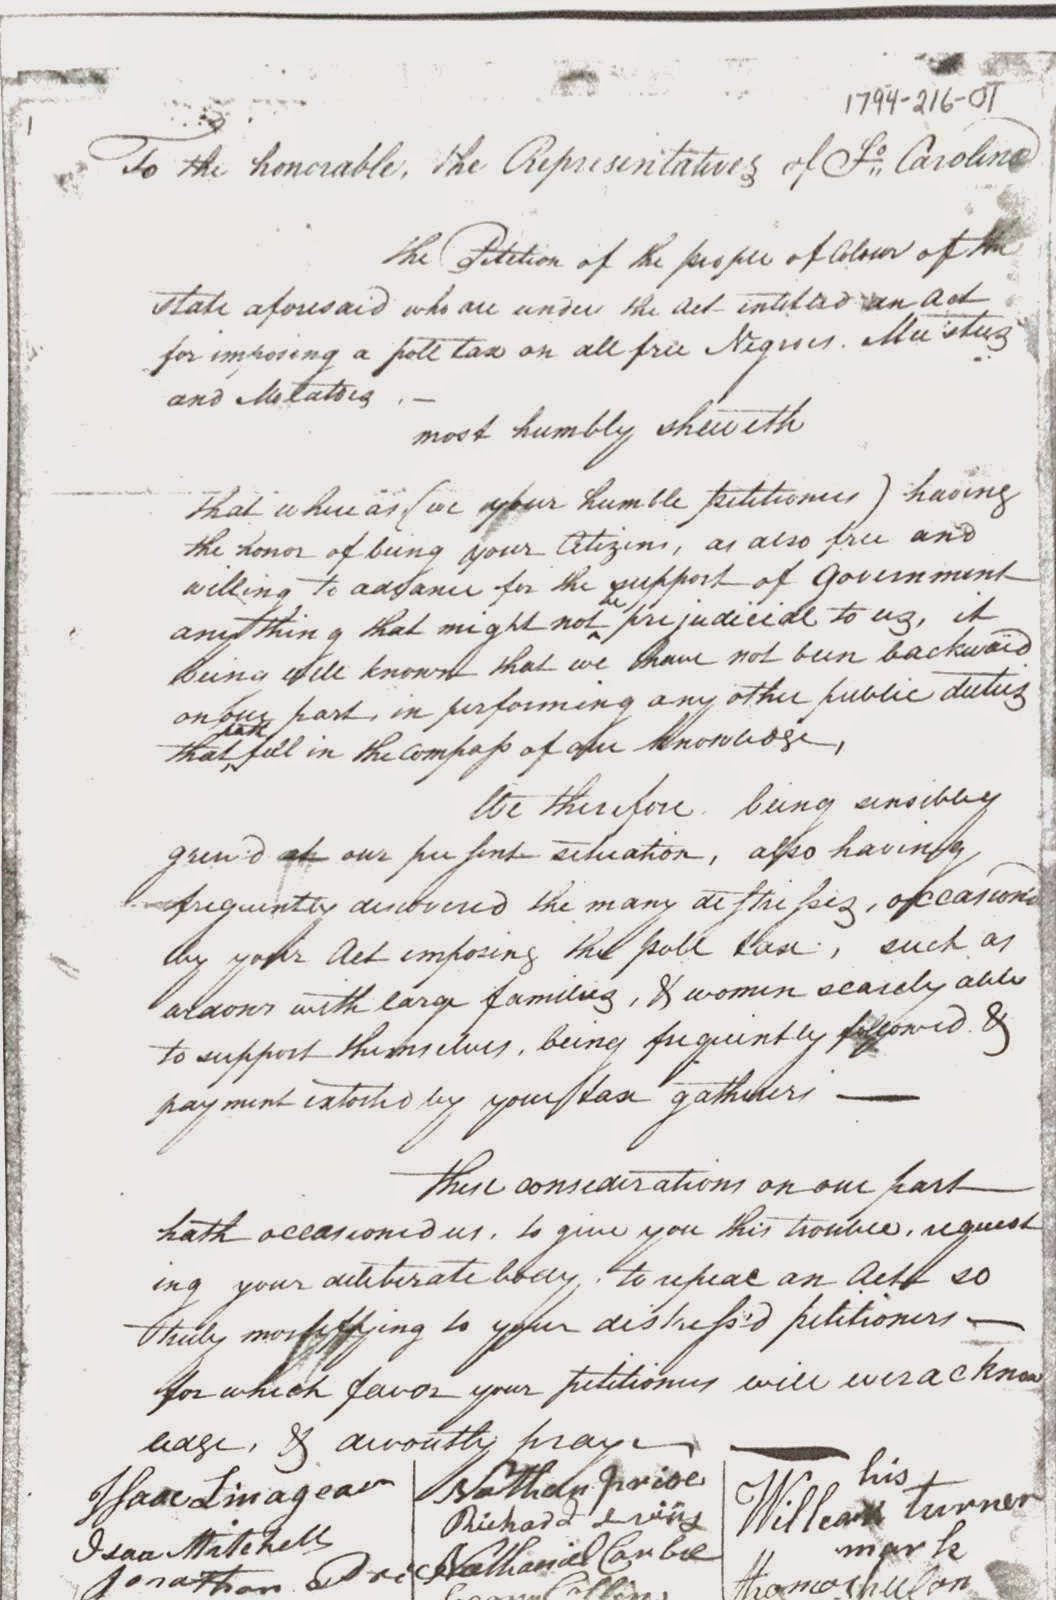 1794-216-01
1
To the honorable, the Representatives of So. Carolina
the Petition of the people of Colour of the
state aforesaid who are under the act intitled an Act
for imposing a poll tax on all free Negroes. Mustees
and Molatoes . —
most humbly sheweth
that whereas (we your humble petitioners) having
the honor of being your Citizens, as also free and
willing to advance for the support of Government
anything that might not be prejudicial to us, it
being well known that we have not been backward
on our part, in performing any other public duties
that hath fell in the compass of our knowledge,
We therefore being sensibly
griev'd at our present situation, also having
frequently discovered the many distresses, occasioned
by your Act imposing the poll tax, such as
widows with large families, & women scarcely able
to support themselves, being frequently followed &
payment extorted by your tax gatherers —
these considerations on our part
hath occasioned us, to give you this trouble, request
ing your deliberate body, to repeal an Act so
truly mortifying to your distress'd petitioners —
for which favor your petitioners will ever acknow
ledge, & devoutly pray —
Isaac Linagear
Isaa Mitchell
Jonathan Price
Nathan price
Richard
Nathaniel Cumbe
Collins
his
William turner
mark